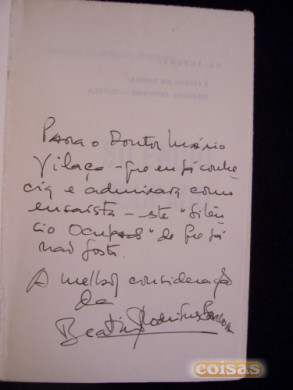 Para o Doutor Mário
Vilaça – que eu já conhe
cia e admirava como
ensaísta – este "Silên
cio Ocupado" de que já
não gosto.
A melhor consideração
da
Beatriz Rodrigues
coisas